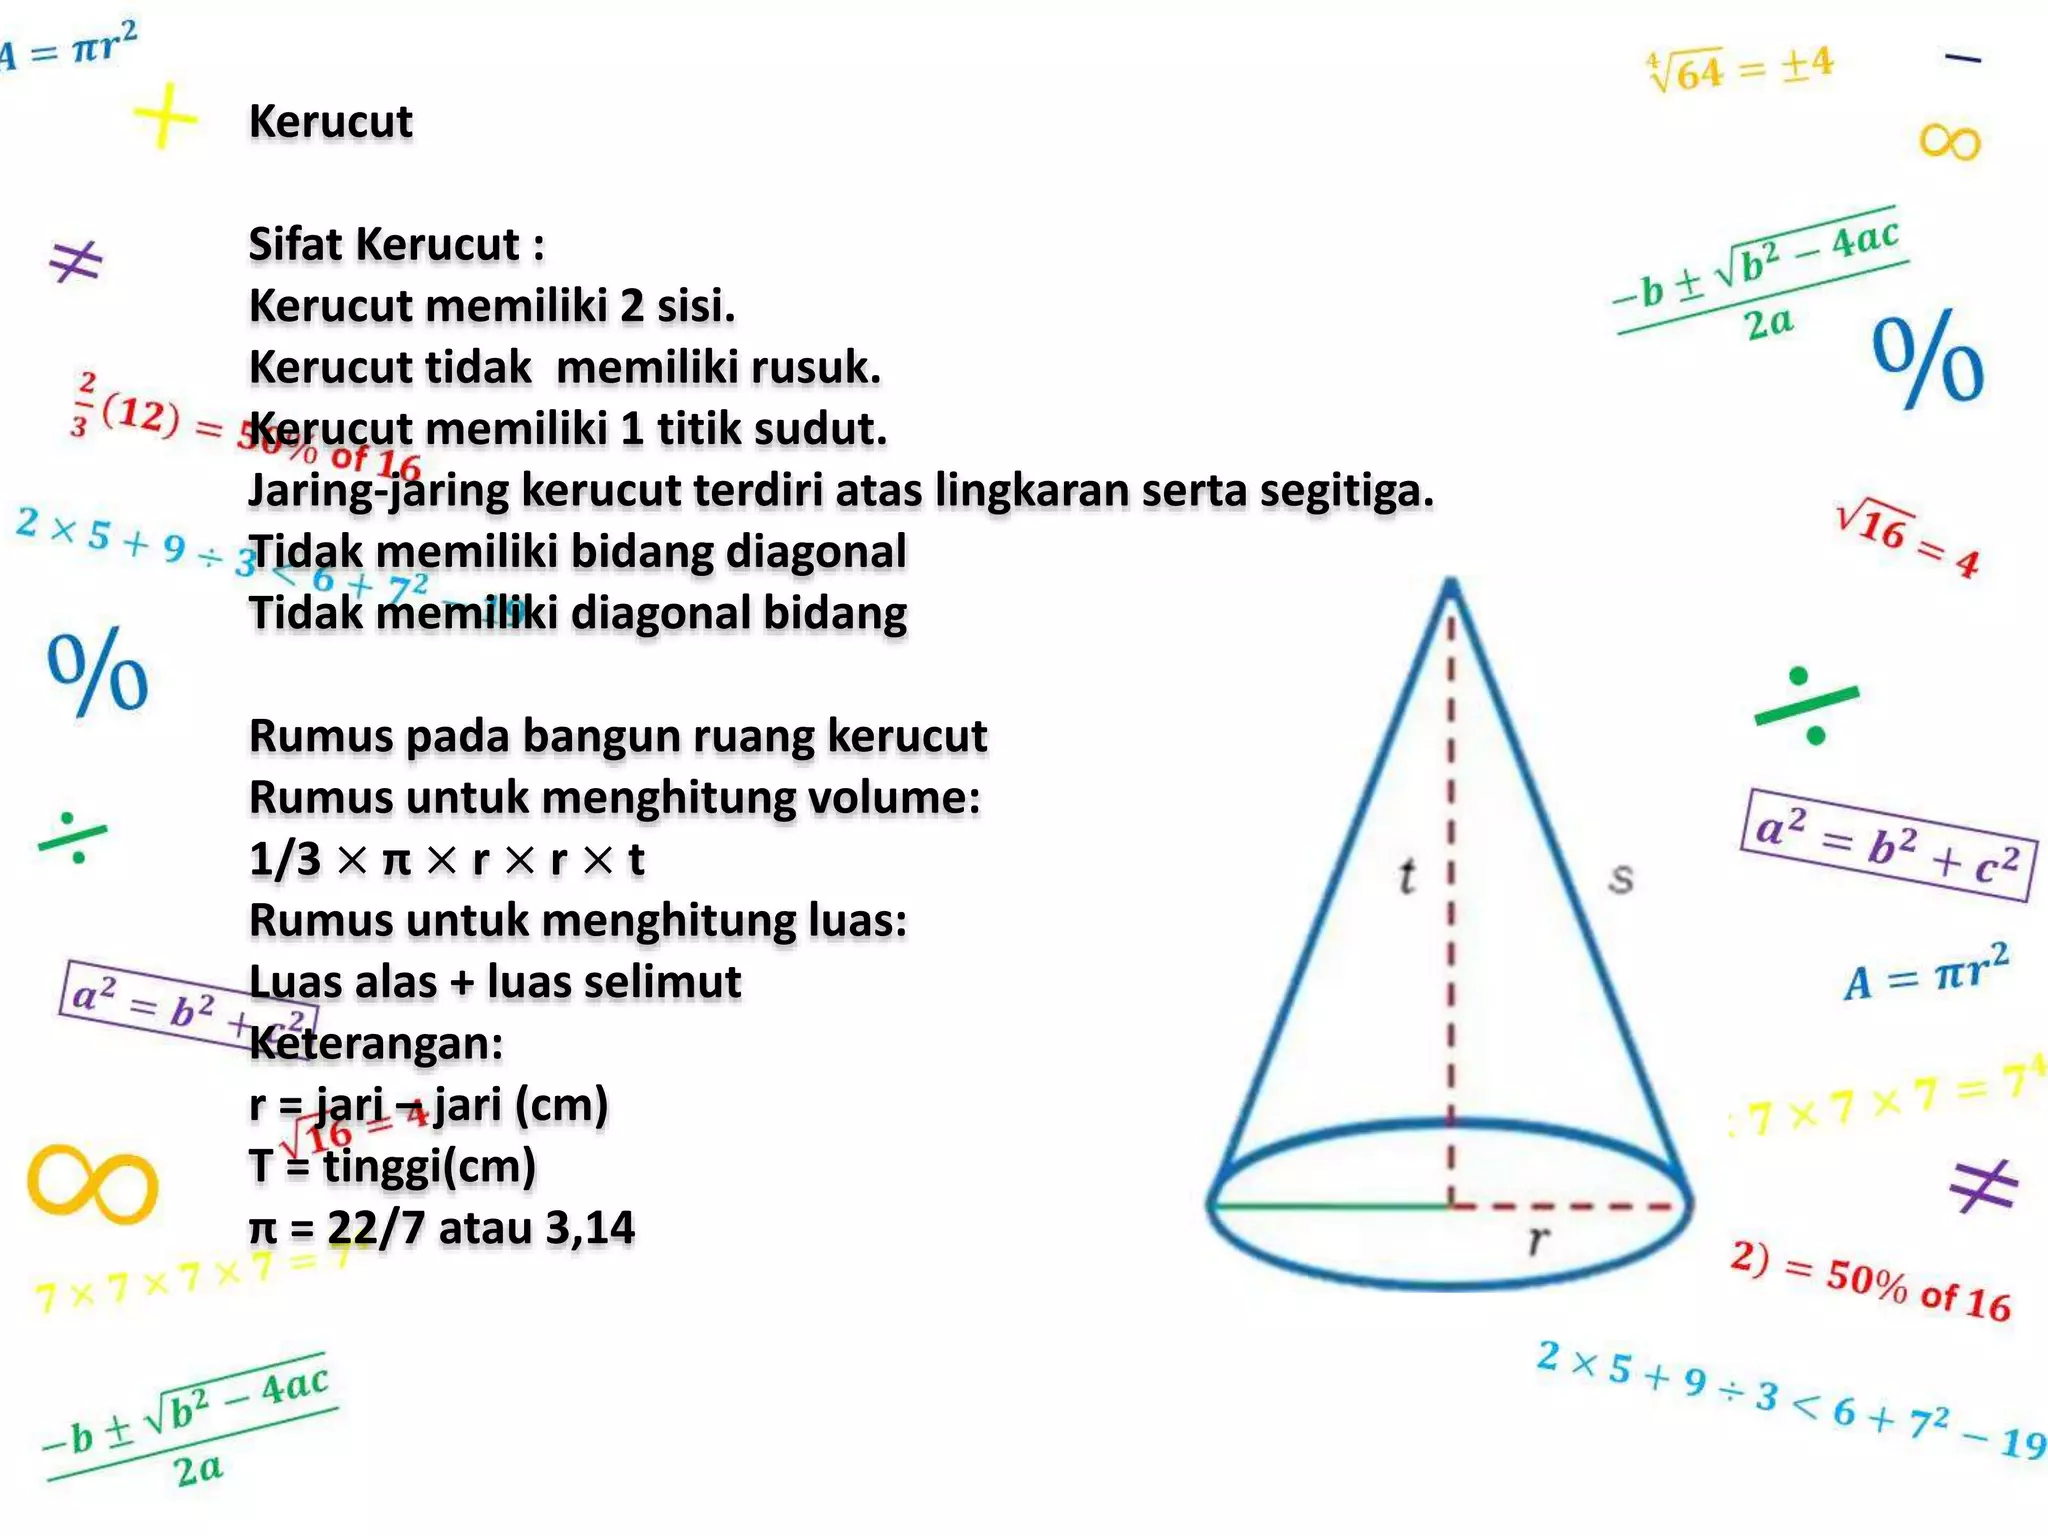 A = πr²
+
∜64 = ±4
−
∞
Kerucut
≠
Sifat Kerucut :
Kerucut memiliki 2 sisi.
Kerucut tidak  memiliki rusuk.
Kerucut memiliki 1 titik sudut.
Jaring-jaring kerucut terdiri atas lingkaran serta segitiga.
Tidak memiliki bidang diagonal
Tidak memiliki diagonal bidang
Rumus pada bangun ruang kerucut
Rumus untuk menghitung volume:
1/3 × π × r × r × t
Rumus untuk menghitung luas:
Luas alas + luas selimut
Keterangan:
r = jari – jari (cm)
T = tinggi(cm)
π = 22/7 atau 3,14
2/3 (12) = 50% of 16
2 × 5 + 9 ÷ 3 < 6 + 7² − 19
%
÷
a² = b² + c²
√16 = 4
∞
7 × 7 × 7 × 7 = 7
−b ± √b² − 4ac
2a
t
s
r
−b ± √b² − 4ac
2a
%
√16 = 4
÷
a² = b² + c²
A = πr²
: 7 × 7 × 7 = 7⁴
≠
2) = 50% of 16
2 × 5 + 9 ÷ 3 < 6 + 7² − 19